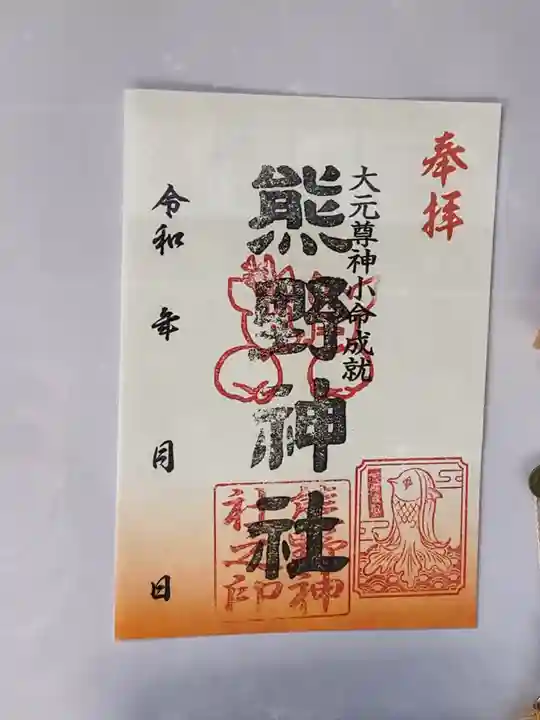 奉拝
大元尊神小命成就
熊野神社
熊野神
社之印
令和 年 月 日